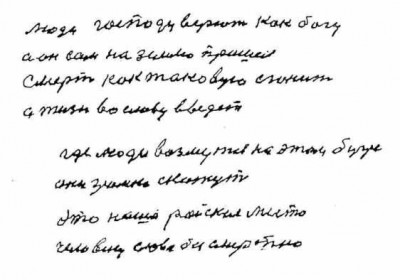 люди господу верют как богу
а он сам на землю пришел
смерт как таковую сгонит
а жизн во славу введет
где люди возмутся на этом бугре
они громко скажут
это наша райския место
человеку слава бессмертно